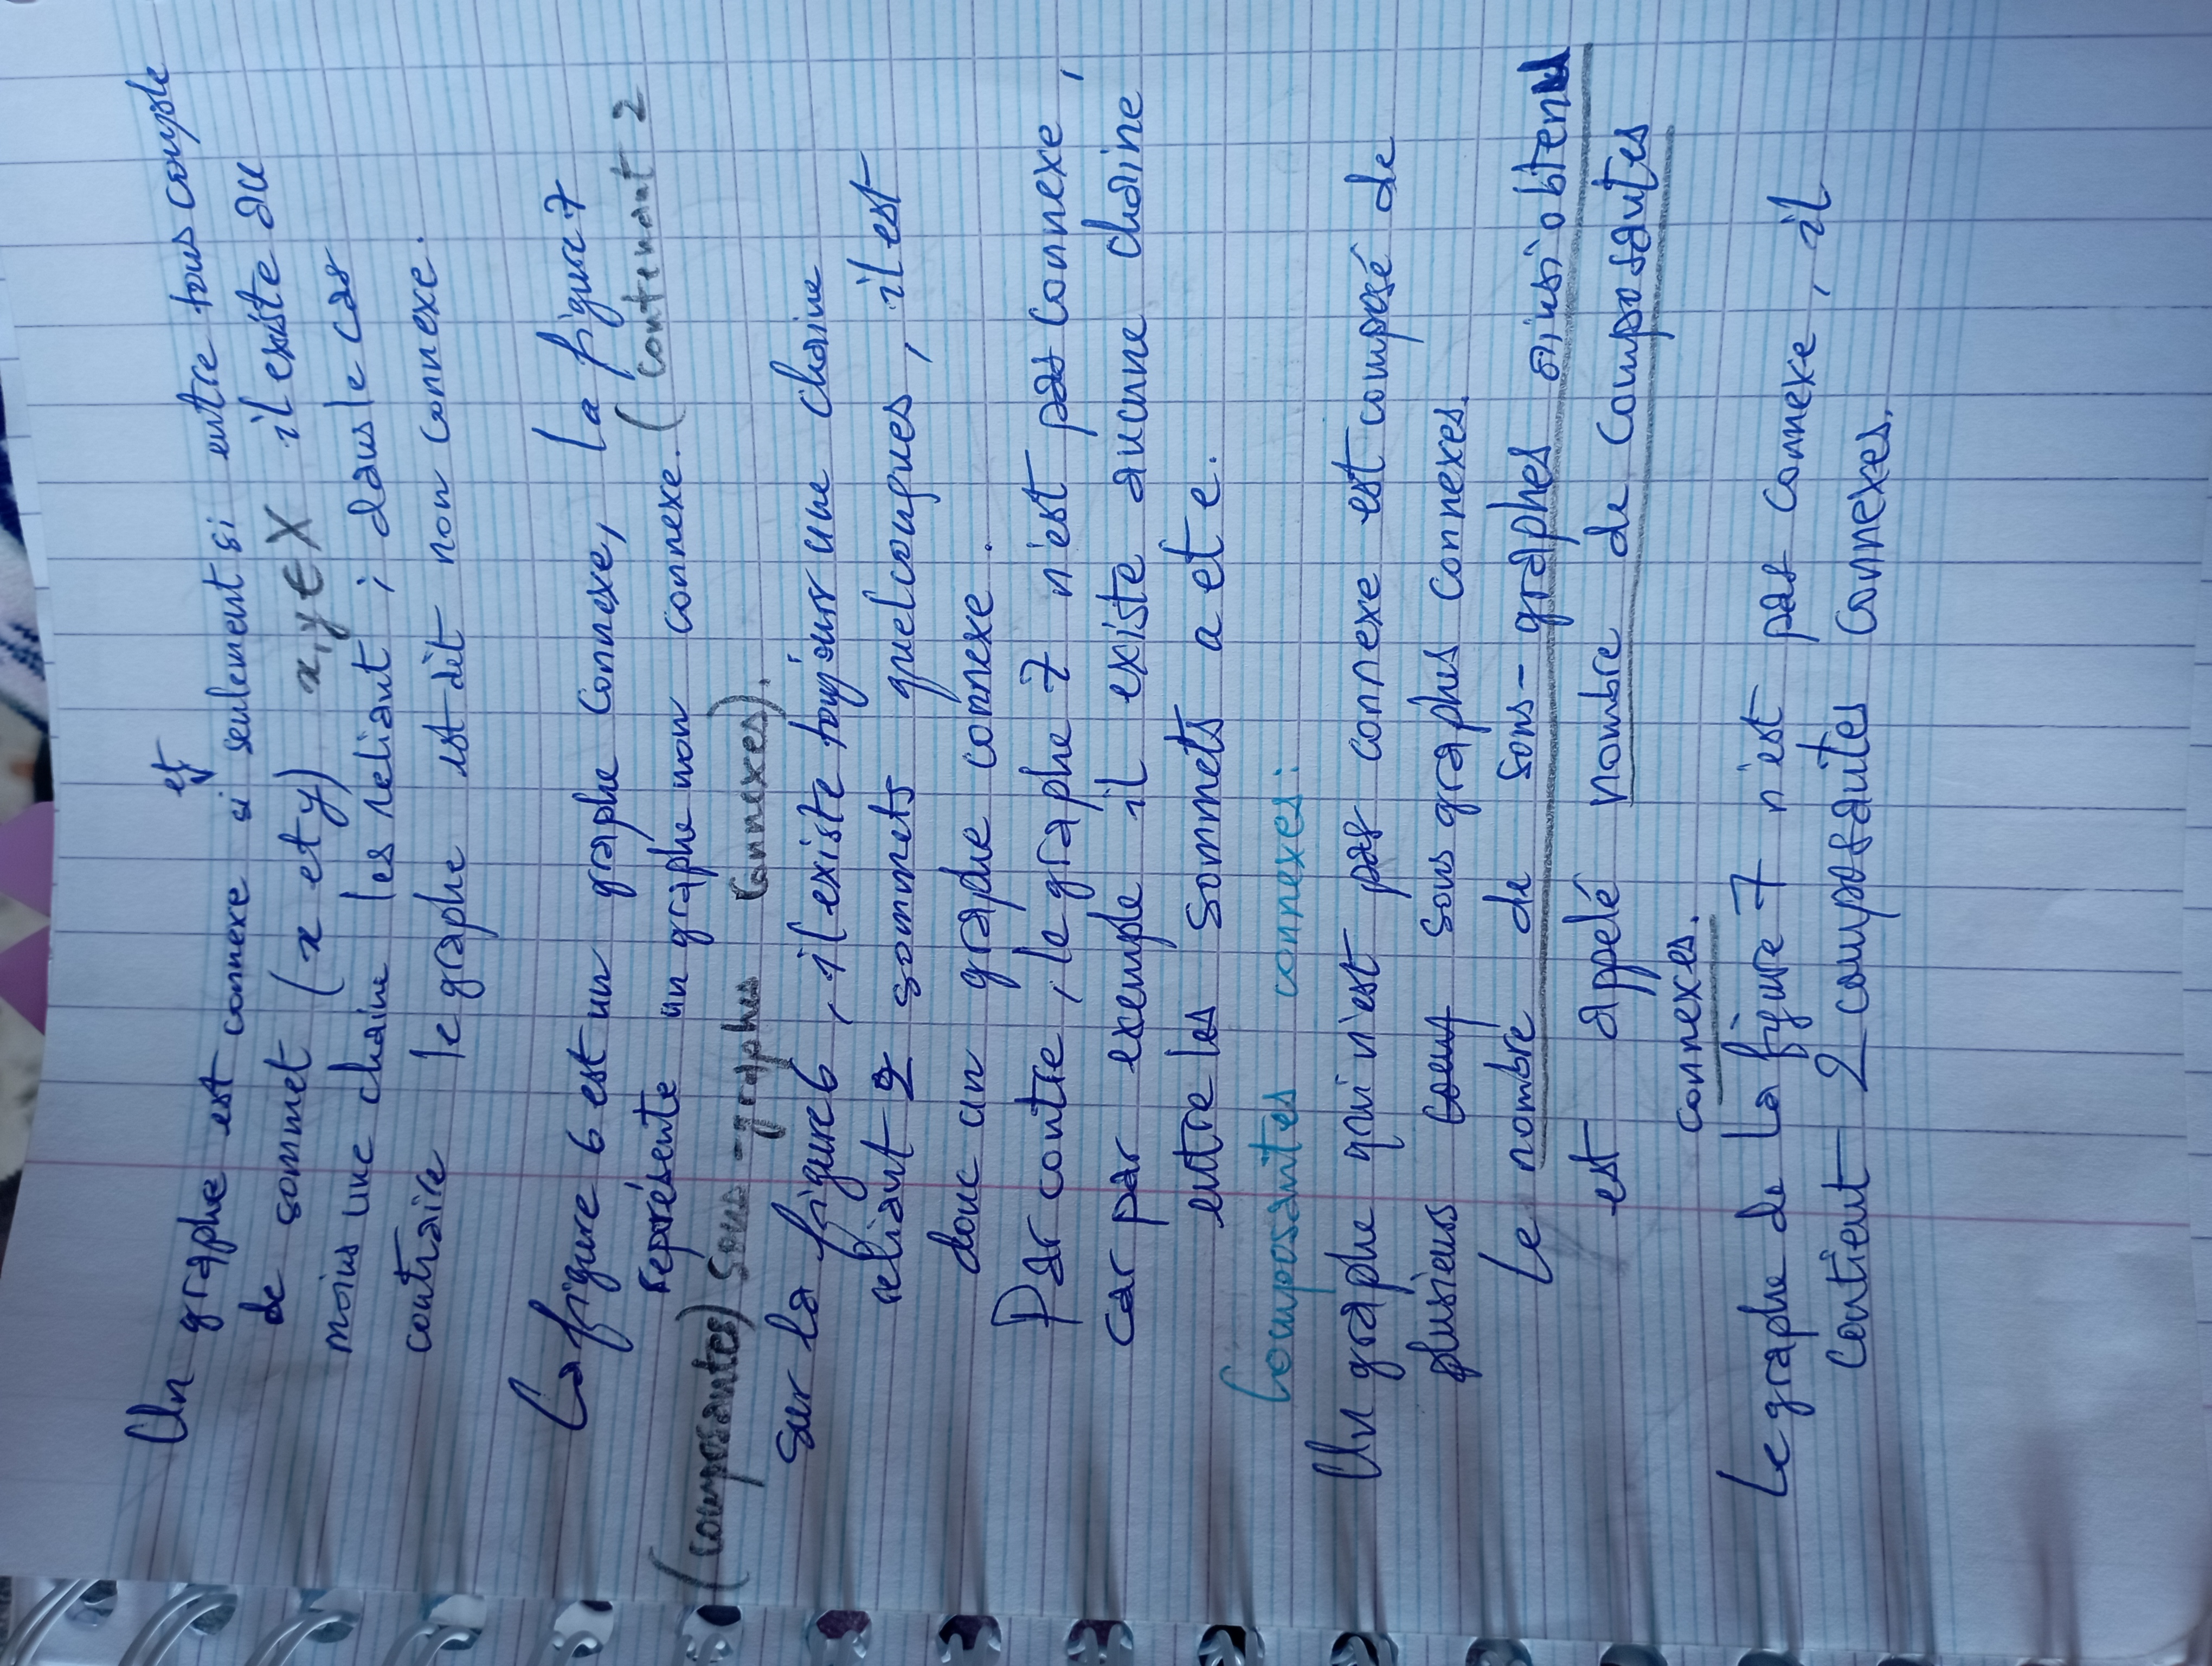 Un graphe est connexe si et seulement si entre tous couple
de sommet (x et y) x,y ∈ X il existe au
moins une chaine les reliant ; dans le cas
contraire le graphe est dit non connexe.
La figure 6 est un graphe connexe, la figure 7
représente un graphe non connexe. (contenant 2
(composantes) sous-graphes connexes).
sur la figure 6, il existe toujours une chaine
reliant 2 sommets quelconques, il est
donc un graphe connexe.
Par contre, le graphe 7 n'est pas connexe,
car par exemple il existe aucune chaine
entre les sommets a et e.
Composantes connexes:
Un graphe qui n'est pas connexe est composé de
plusieurs sous graphes connexes.
Le nombre de sous-graphes ainsi obtenu
est appelé nombre de composantes
connexes.
Le graphe de la figure 7 n'est pas connexe, il
contient 2 composantes connexes.